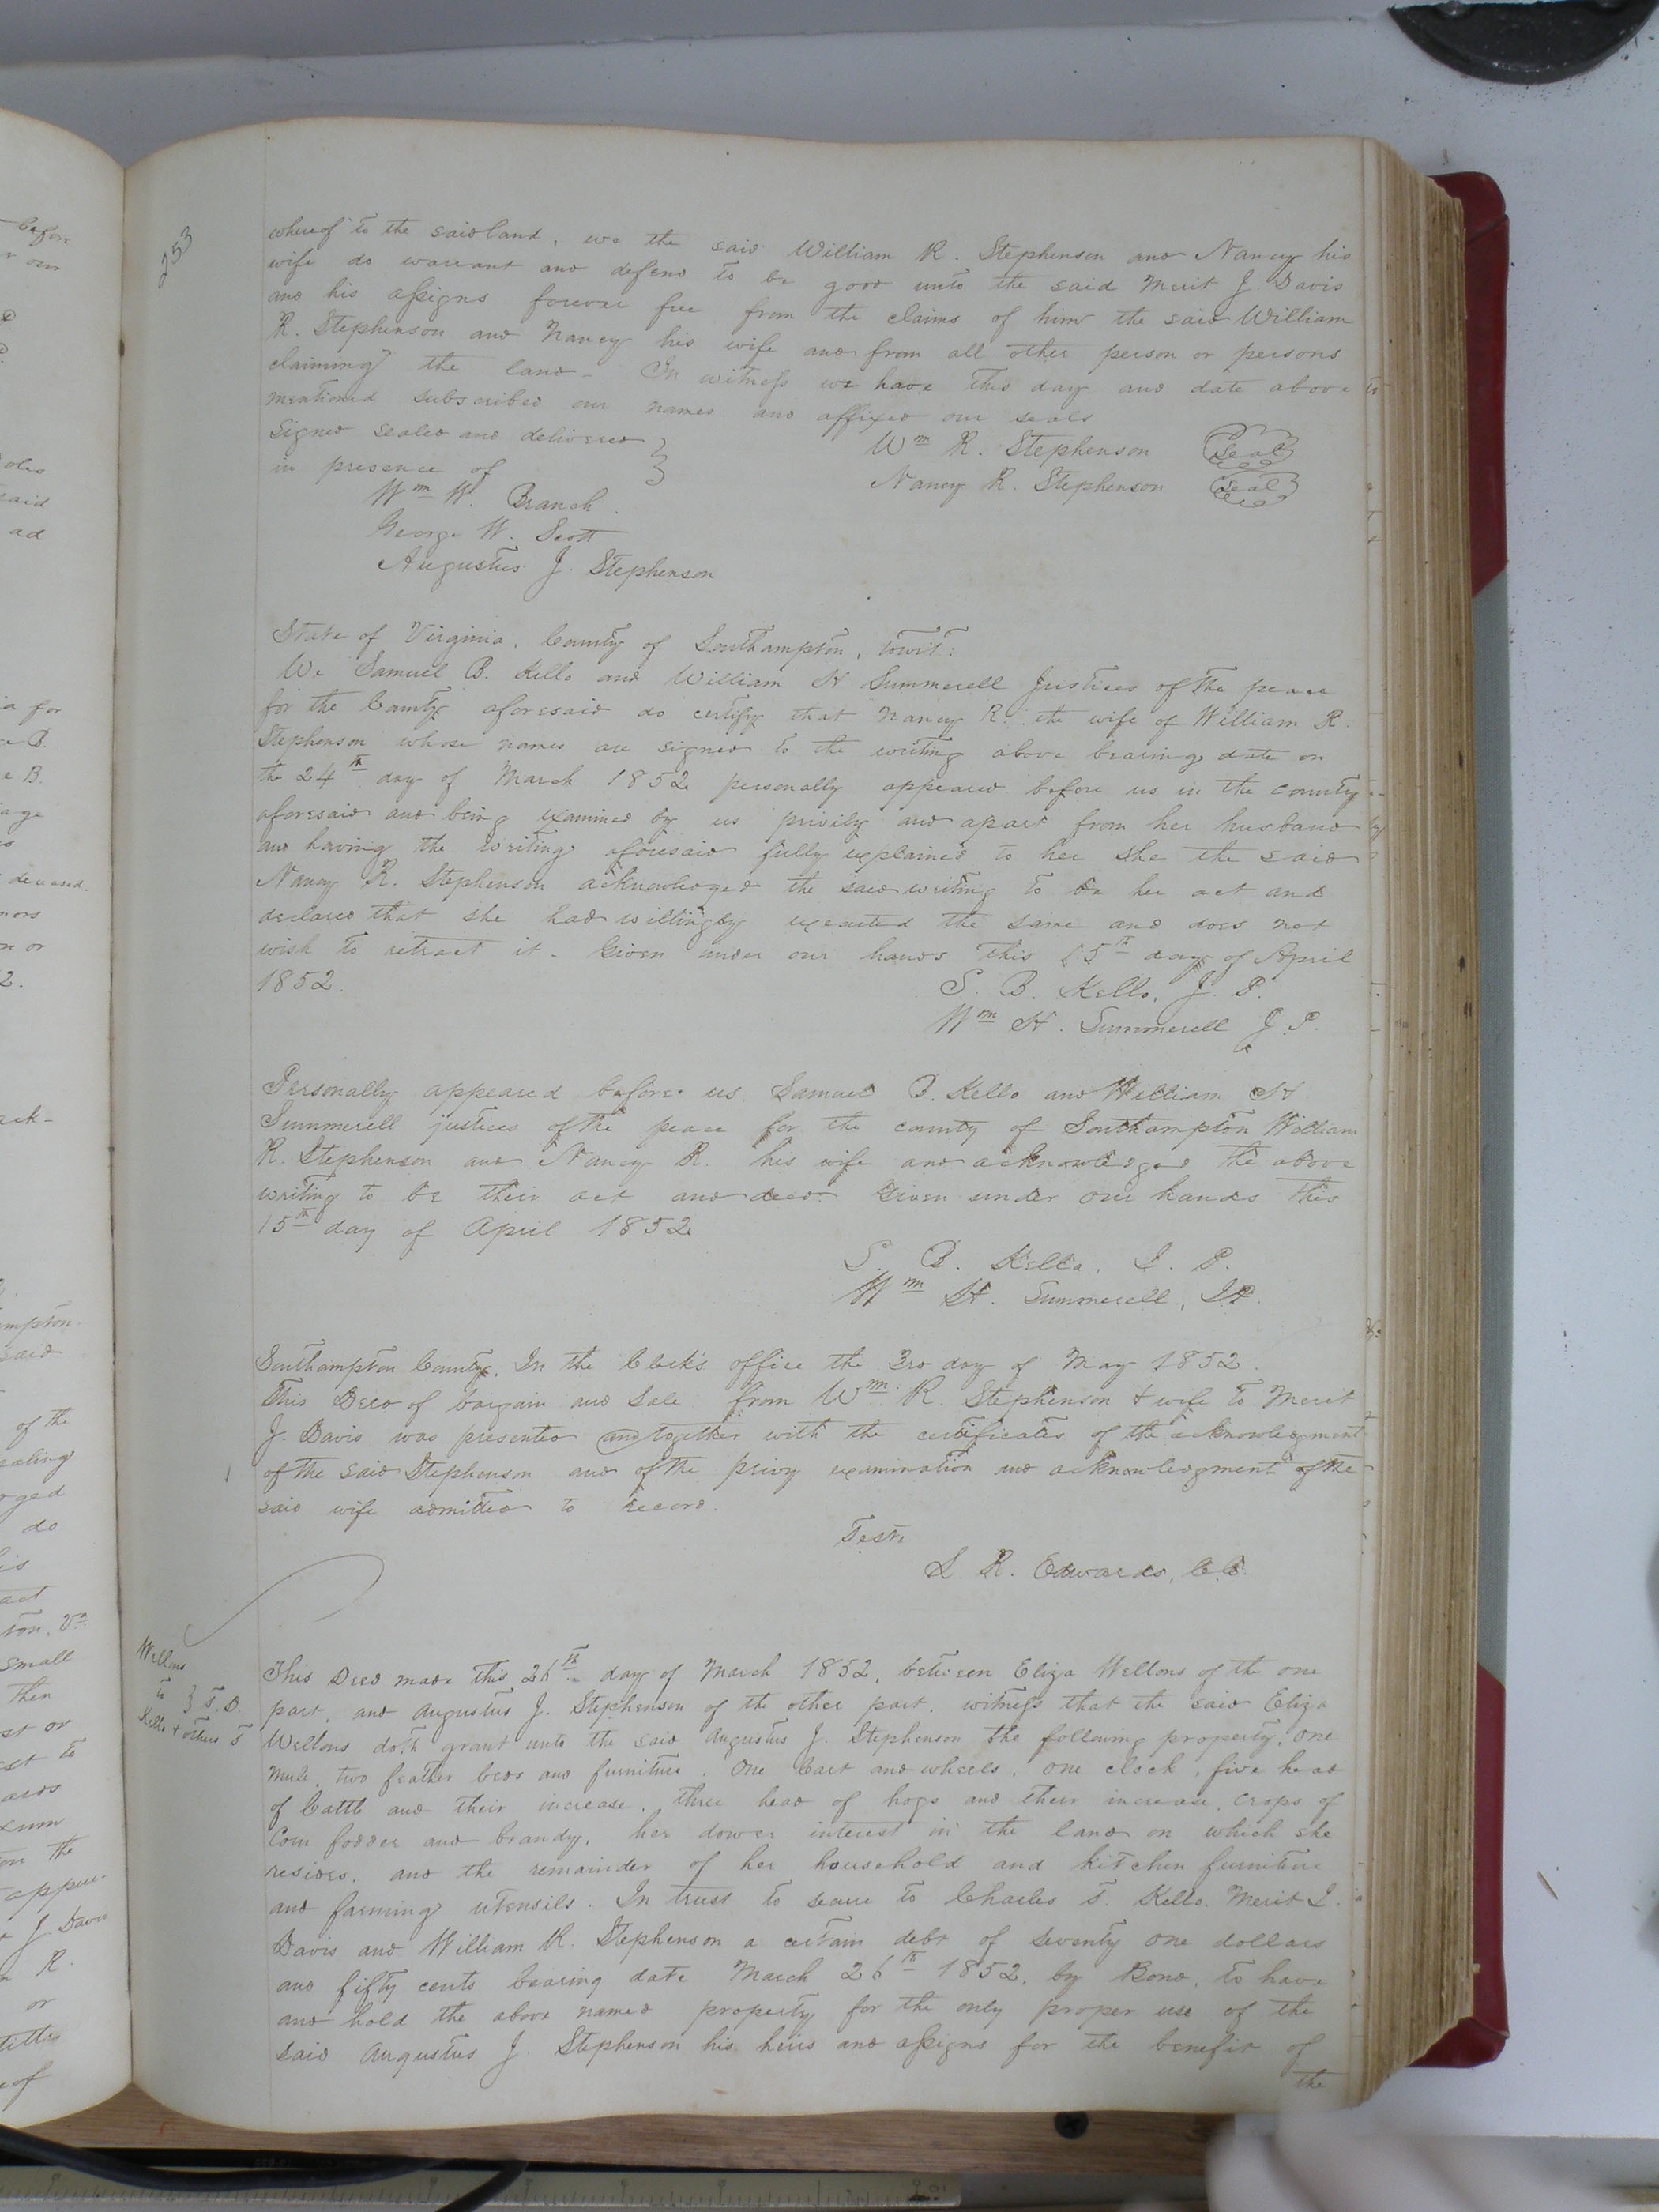 253
whereof to the said land, we the said William R. Stephenson and Nancy his
wife do warrant and defend to be good unto the said Merit J. Davis
and his assigns forever free from the claims of him the said William
R. Stephenson and Nancy his wife and from all other person or persons
claiming the land - In witness we have this day and date above
mentioned subscribed our names and affixed our seals
Signed sealed and delivered }
in presence of
Wm R. Stephenson Seal
Nancy R. Stephenson Seal
Wm W. Branch
George W. Scott
Augustus J. Stephenson
State of Virginia, County of Southampton, towit:
We Samuel B. Kello and William H Summerell Justices of the peace
for the County aforesaid do certify that Nancy R. the wife of William R.
Stephenson whose names are signed to the writing above bearing date on
the 24th day of March 1852 personally appeared before us in the county
aforesaid and being examined by us privily and apart from her husband
and having the writing aforesaid fully explained to her she the said
Nancy R. Stephenson acknowledged the said writing to be her act and
declared that she had willingly executed the same and does not
wish to retract it. Given under our hands this 15th day of April
1852.
S. B. Kello, J. P.
Wm H. Summerell J. P.
Personally appeared before us Samuel B. Kello and William H
Summerell justices of the peace for the county of Southampton William
R. Stephenson and Nancy R. his wife and acknowledged the above
writing to be their act and deed. Given under our hands this
15th day of April 1852
S. B. Kello, J. P.
Wm H. Summerell, JP.
Southampton County, In the Clerk's office the 3rd day of May 1852.
This Deed of bargain and Sale from Wm R. Stephenson & wife to Merit
J. Davis was presented and together with the certificates of the acknowledgment
of the said Stephenson and of the privy examination and acknowledgment of the
said wife admitted to record.
Teste
L. R. Edwards, C. C.
Wellons
to } T. D.
Kello & others
This Deed made this 26th day of March 1852, between Eliza Wellons of the one
part, and Augustus J. Stephenson of the other part, witness that the said Eliza
Wellons doth grant unto the said Augustus J. Stephenson the following property, One
mule, two feather beds and furniture, One Cart and wheels, one clock, five head
of Cattle and their increase, three head of hogs and their increase, crops of
Corn fodder and brandy, her dower interest in the land on which she
resides, and the remainder of her household and kitchen furniture
and farming utensils. In trust to secure to Charles T. Kello, Merit J.
Davis and William R. Stephenson a certain debt of Seventy one dollars
and fifty cents bearing date March 26th 1852, by Bond, to have
and hold the above named property for the only proper use of the
said Augustus J. Stephenson his heirs and assigns for the benefit of
the